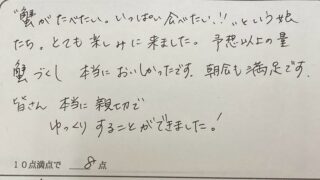 "蟹がたべたい。いっぱい食べたい!!"という娘
たち。とても楽しみに来ました。予想以上の量
蟹づくし 本当においしかったです。朝食も満足です。
皆さん 本当に親切で
ゆっくりすることができました。!
10点満点で 8 点